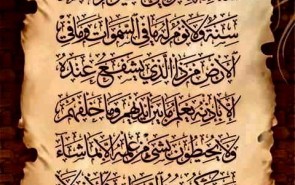 سنة ولا نوم له ما في السموات وما في
الارض من ذا الذي يشفع عنده
الا باذنه يعلم ما بين ايديهم وما خلفهم
ولا يحيطون بشيء من علمه الا بما شاء